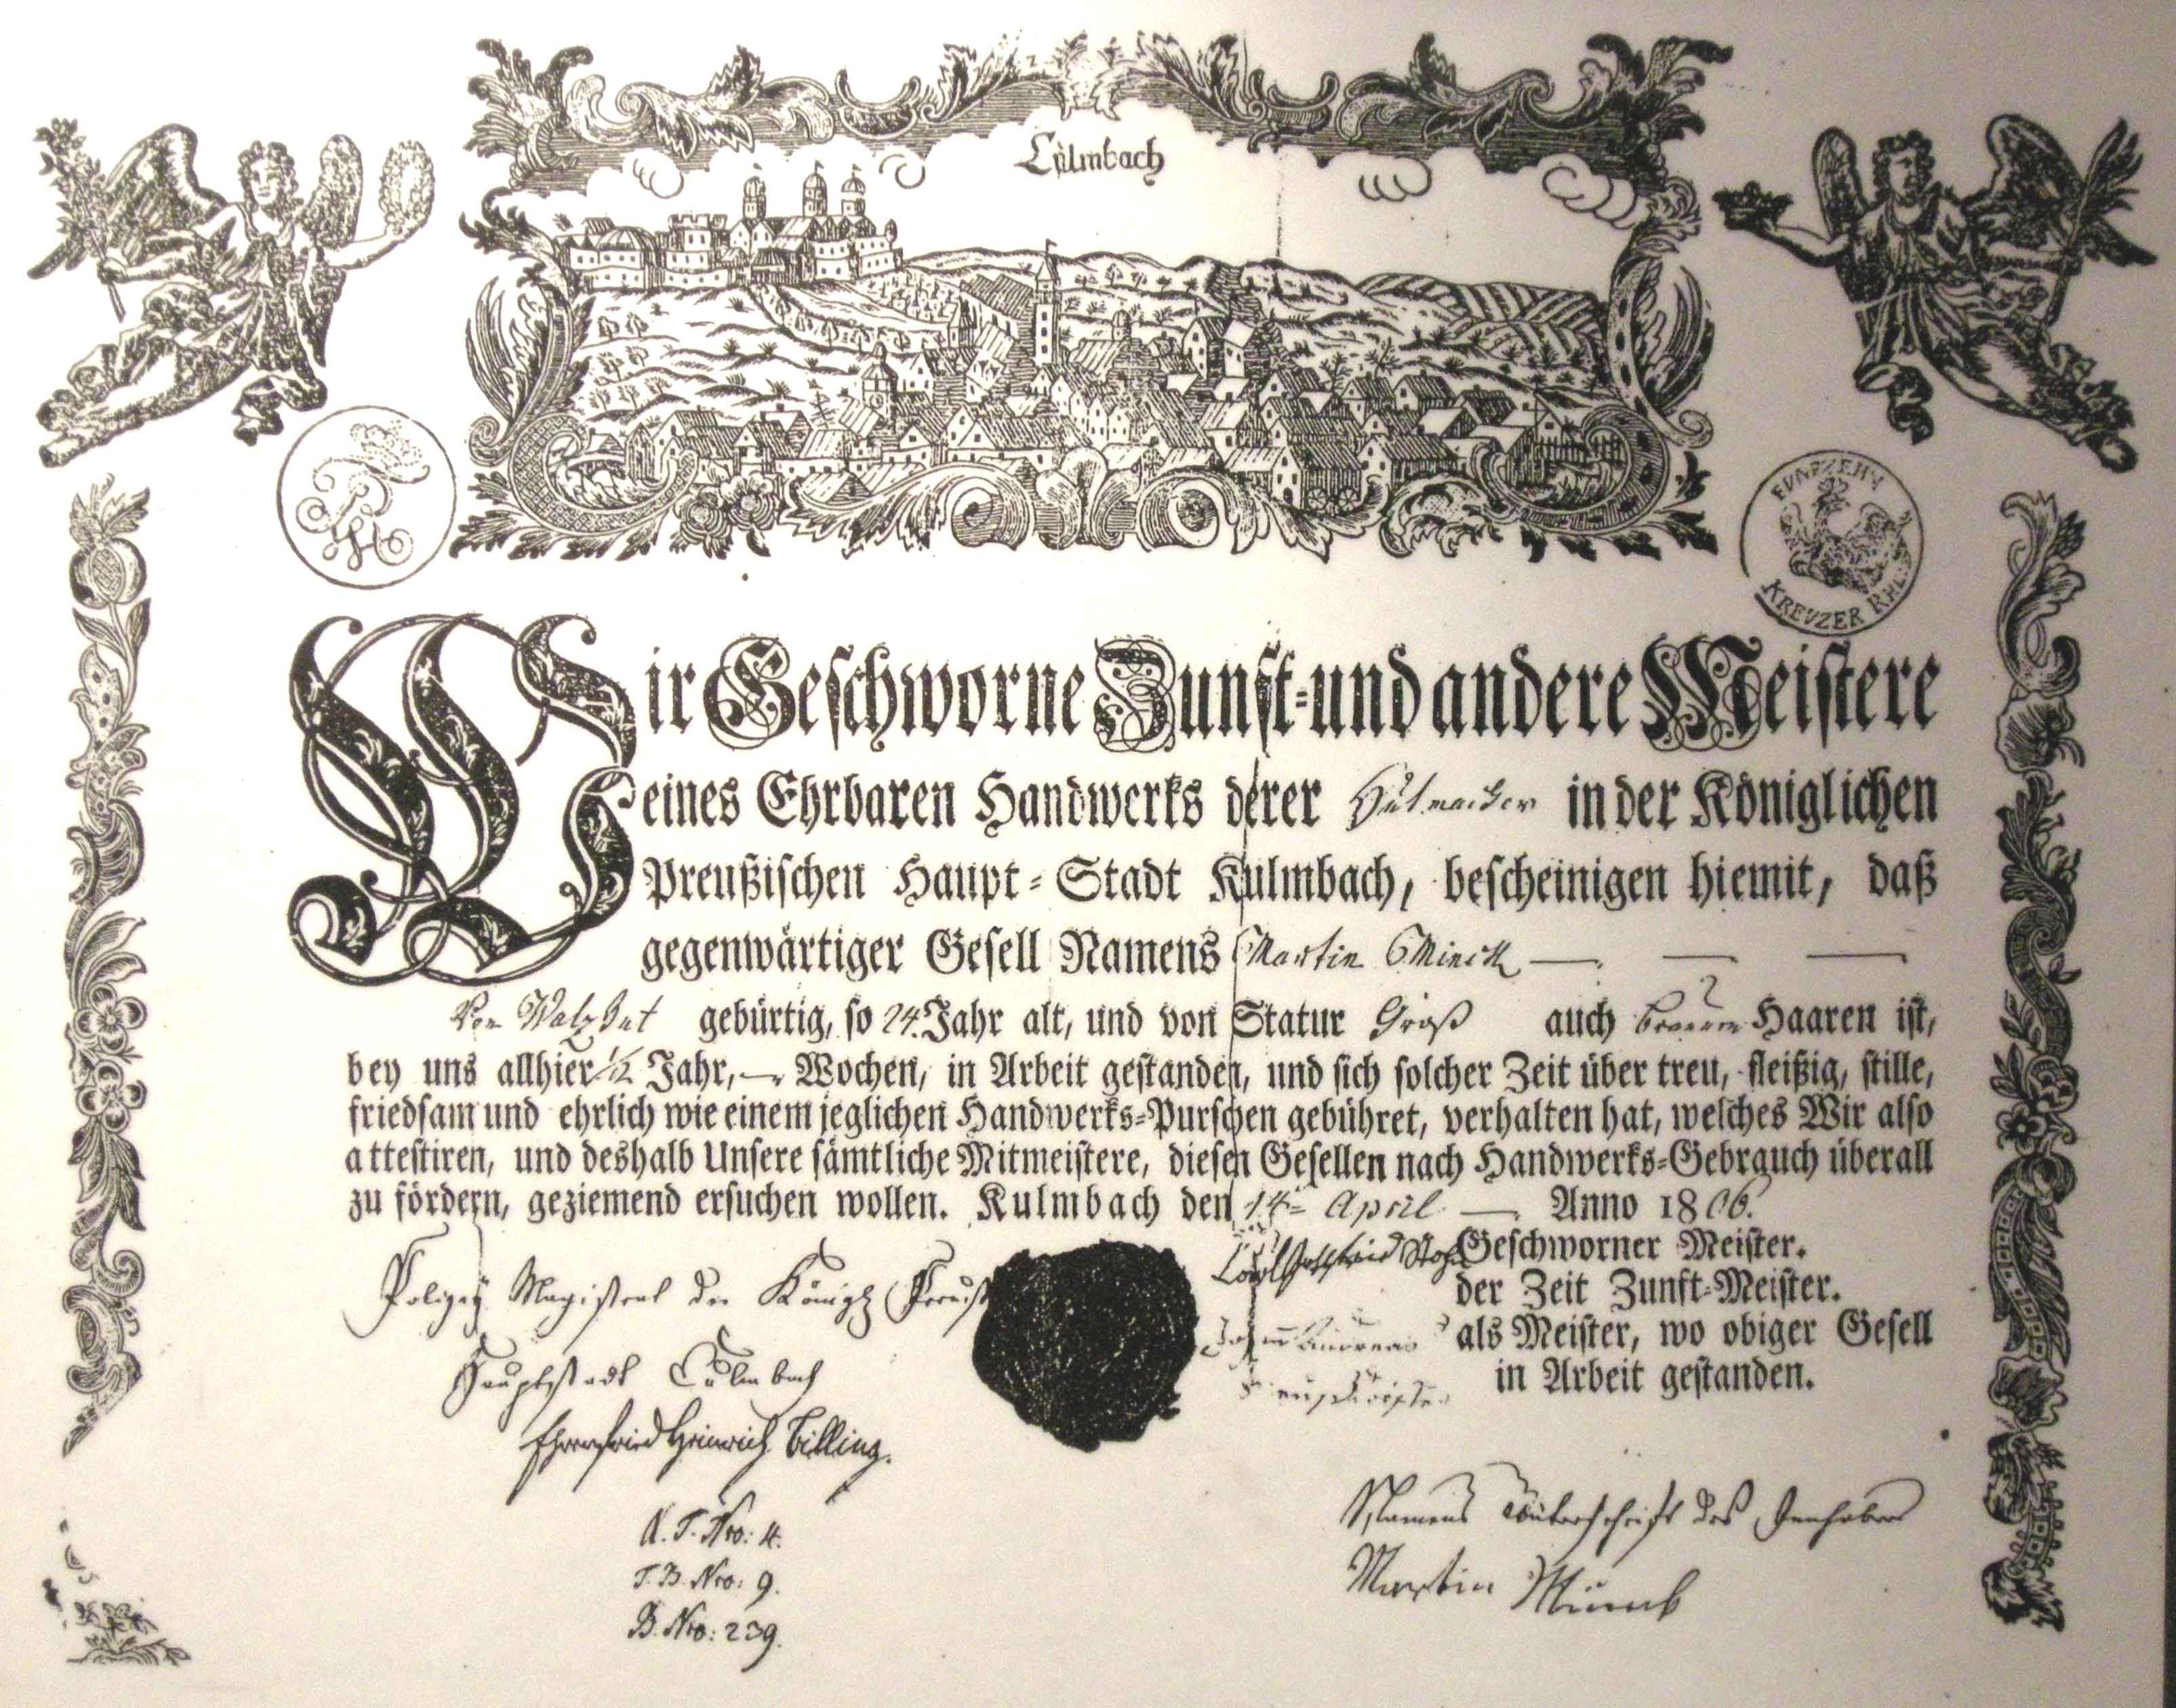 Cülmbach
FVNFZEHN
KREVZER RHL:
Wir Geschworne Zunft-und andere Meistere
eines Ehrbaren Handwerks derer Hutmacher in der Königlichen
Preußischen Haupt-Stadt Kulmbach, bescheinigen hiemit, daß
gegenwärtiger Gesell Namens Martin Minck
Von Walzhut gebürtig, so 24. Jahr alt, und von Statur Groß auch braune Haaren ist,
bey uns allhier 1/2 Jahr, — Wochen, in Arbeit gestanden, und sich solcher Zeit über treu, fleißig, stille,
friedsam und ehrlich wie einem jeglichen Handwerks-Purschen gebühret, verhalten hat, welches Wir also
attestiren, und deshalb Unsere sämtliche Mitmeistere, diesen Gesellen nach Handwerks-Gebrauch überall
zu fördern, geziemend ersuchen wollen. Kulmbach den 14 April — Anno 1806.
Geschworner Meister.
der Zeit Zunft-Meister.
Johann Andreas als Meister, wo obiger Gesell
in Arbeit gestanden.
Polizey Magistrat der Königl Preuß
Hauptstadt Culmbach
Ehrenfried Heinrich Billing.
A. T. Nro: 4.
T. B. Nro: 9.
B. Nro: 239.
Namens Unterschrift des Innhabers
Martin Münch